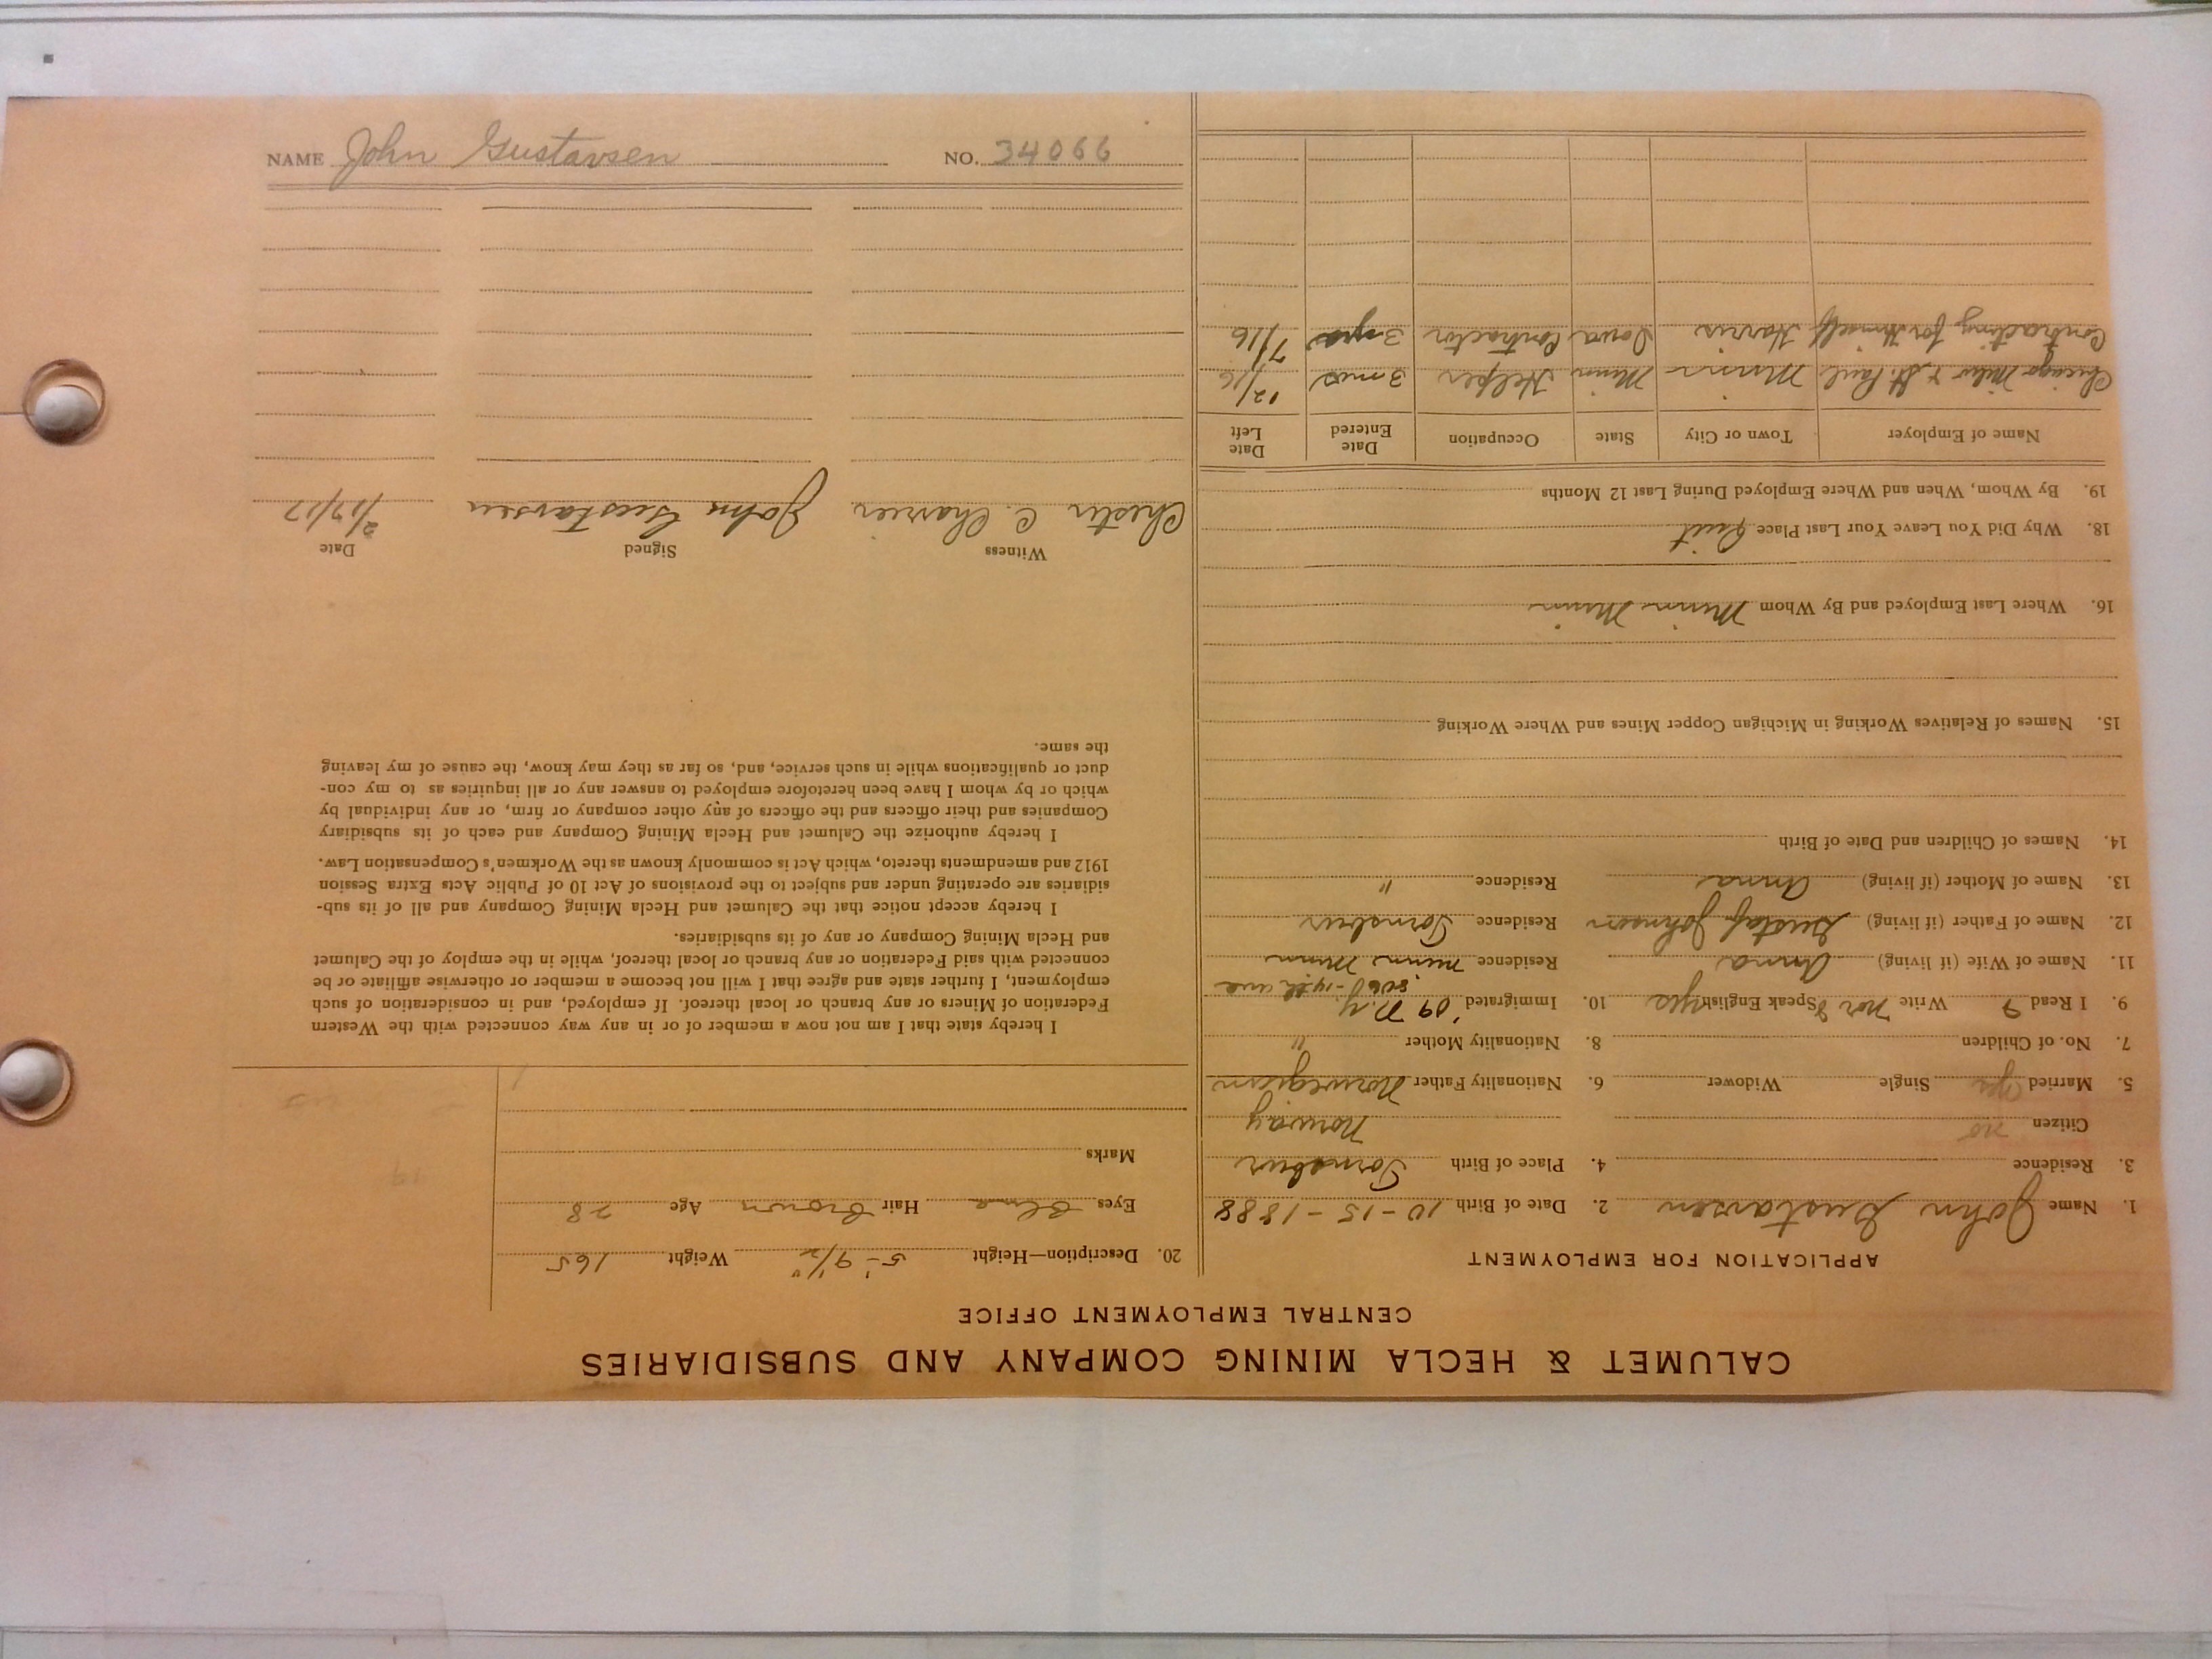 CALUMET & HECLA MINING COMPANY AND SUBSIDIARIES
CENTRAL EMPLOYMENT OFFICE
APPLICATION FOR EMPLOYMENT
1. Name John Gustavsen 2. Date of Birth 10-15-1888
3. Residence 4. Place of Birth
Citizen no Norway
5. Married yes Single Widower 6. Nationality Father Norwegian
7. No. of Children 8. Nationality Mother "
9. I Read & Write Nor & Speak English yes 10. Immigrated '09 N.Y.
11. Name of Wife (if living) Anna Residence Minn Minn
12. Name of Father (if living) Gustaf Johnson Residence
13. Name of Mother (if living) Anna Residence "
14. Names of Children and Date of Birth
15. Names of Relatives Working in Michigan Copper Mines and Where Working
16. Where Last Employed and By Whom Minn Minn
18. Why Did You Leave Your Last Place Quit
19. By Whom, When and Where Employed During Last 12 Months
Name of Employer Town or City State Occupation Date Entered Date Left
Chicago Milw & St. Paul Minn Minn Helper 3 mos 12/16
Contracting for Himself Harris Iowa Contractor 3 yrs 7/16
20. Description—Height 5'-9 1/2" Weight 165
Eyes Blue Hair Brown Age 28
Marks
I hereby state that I am not now a member of or in any way connected with the Western
Federation of Miners or any branch or local thereof. If employed, and in consideration of such
employment, I further state and agree that I will not become a member or otherwise affiliate or be
connected with said Federation or any branch or local thereof, while in the employ of the Calumet
and Hecla Mining Company or any of its subsidiaries.
I hereby accept notice that the Calumet and Hecla Mining Company and all of its sub-
sidiaries are operating under and subject to the provisions of Act 10 of Public Acts Extra Session
1912 and amendments thereto, which Act is commonly known as the Workmen's Compensation Law.
I hereby authorize the Calumet and Hecla Mining Company and each of its subsidiary
Companies and their officers and the officers of any other company or firm, or any individual by
which or by whom I have been heretofore employed to answer any or all inquiries as to my con-
duct or qualifications while in such service, and, so far as they may know, the cause of my leaving
the same.
Witness Signed Date
Chester C. Charrier John Gustavsen 2/17/17
NAME John Gustavsen NO. 34066